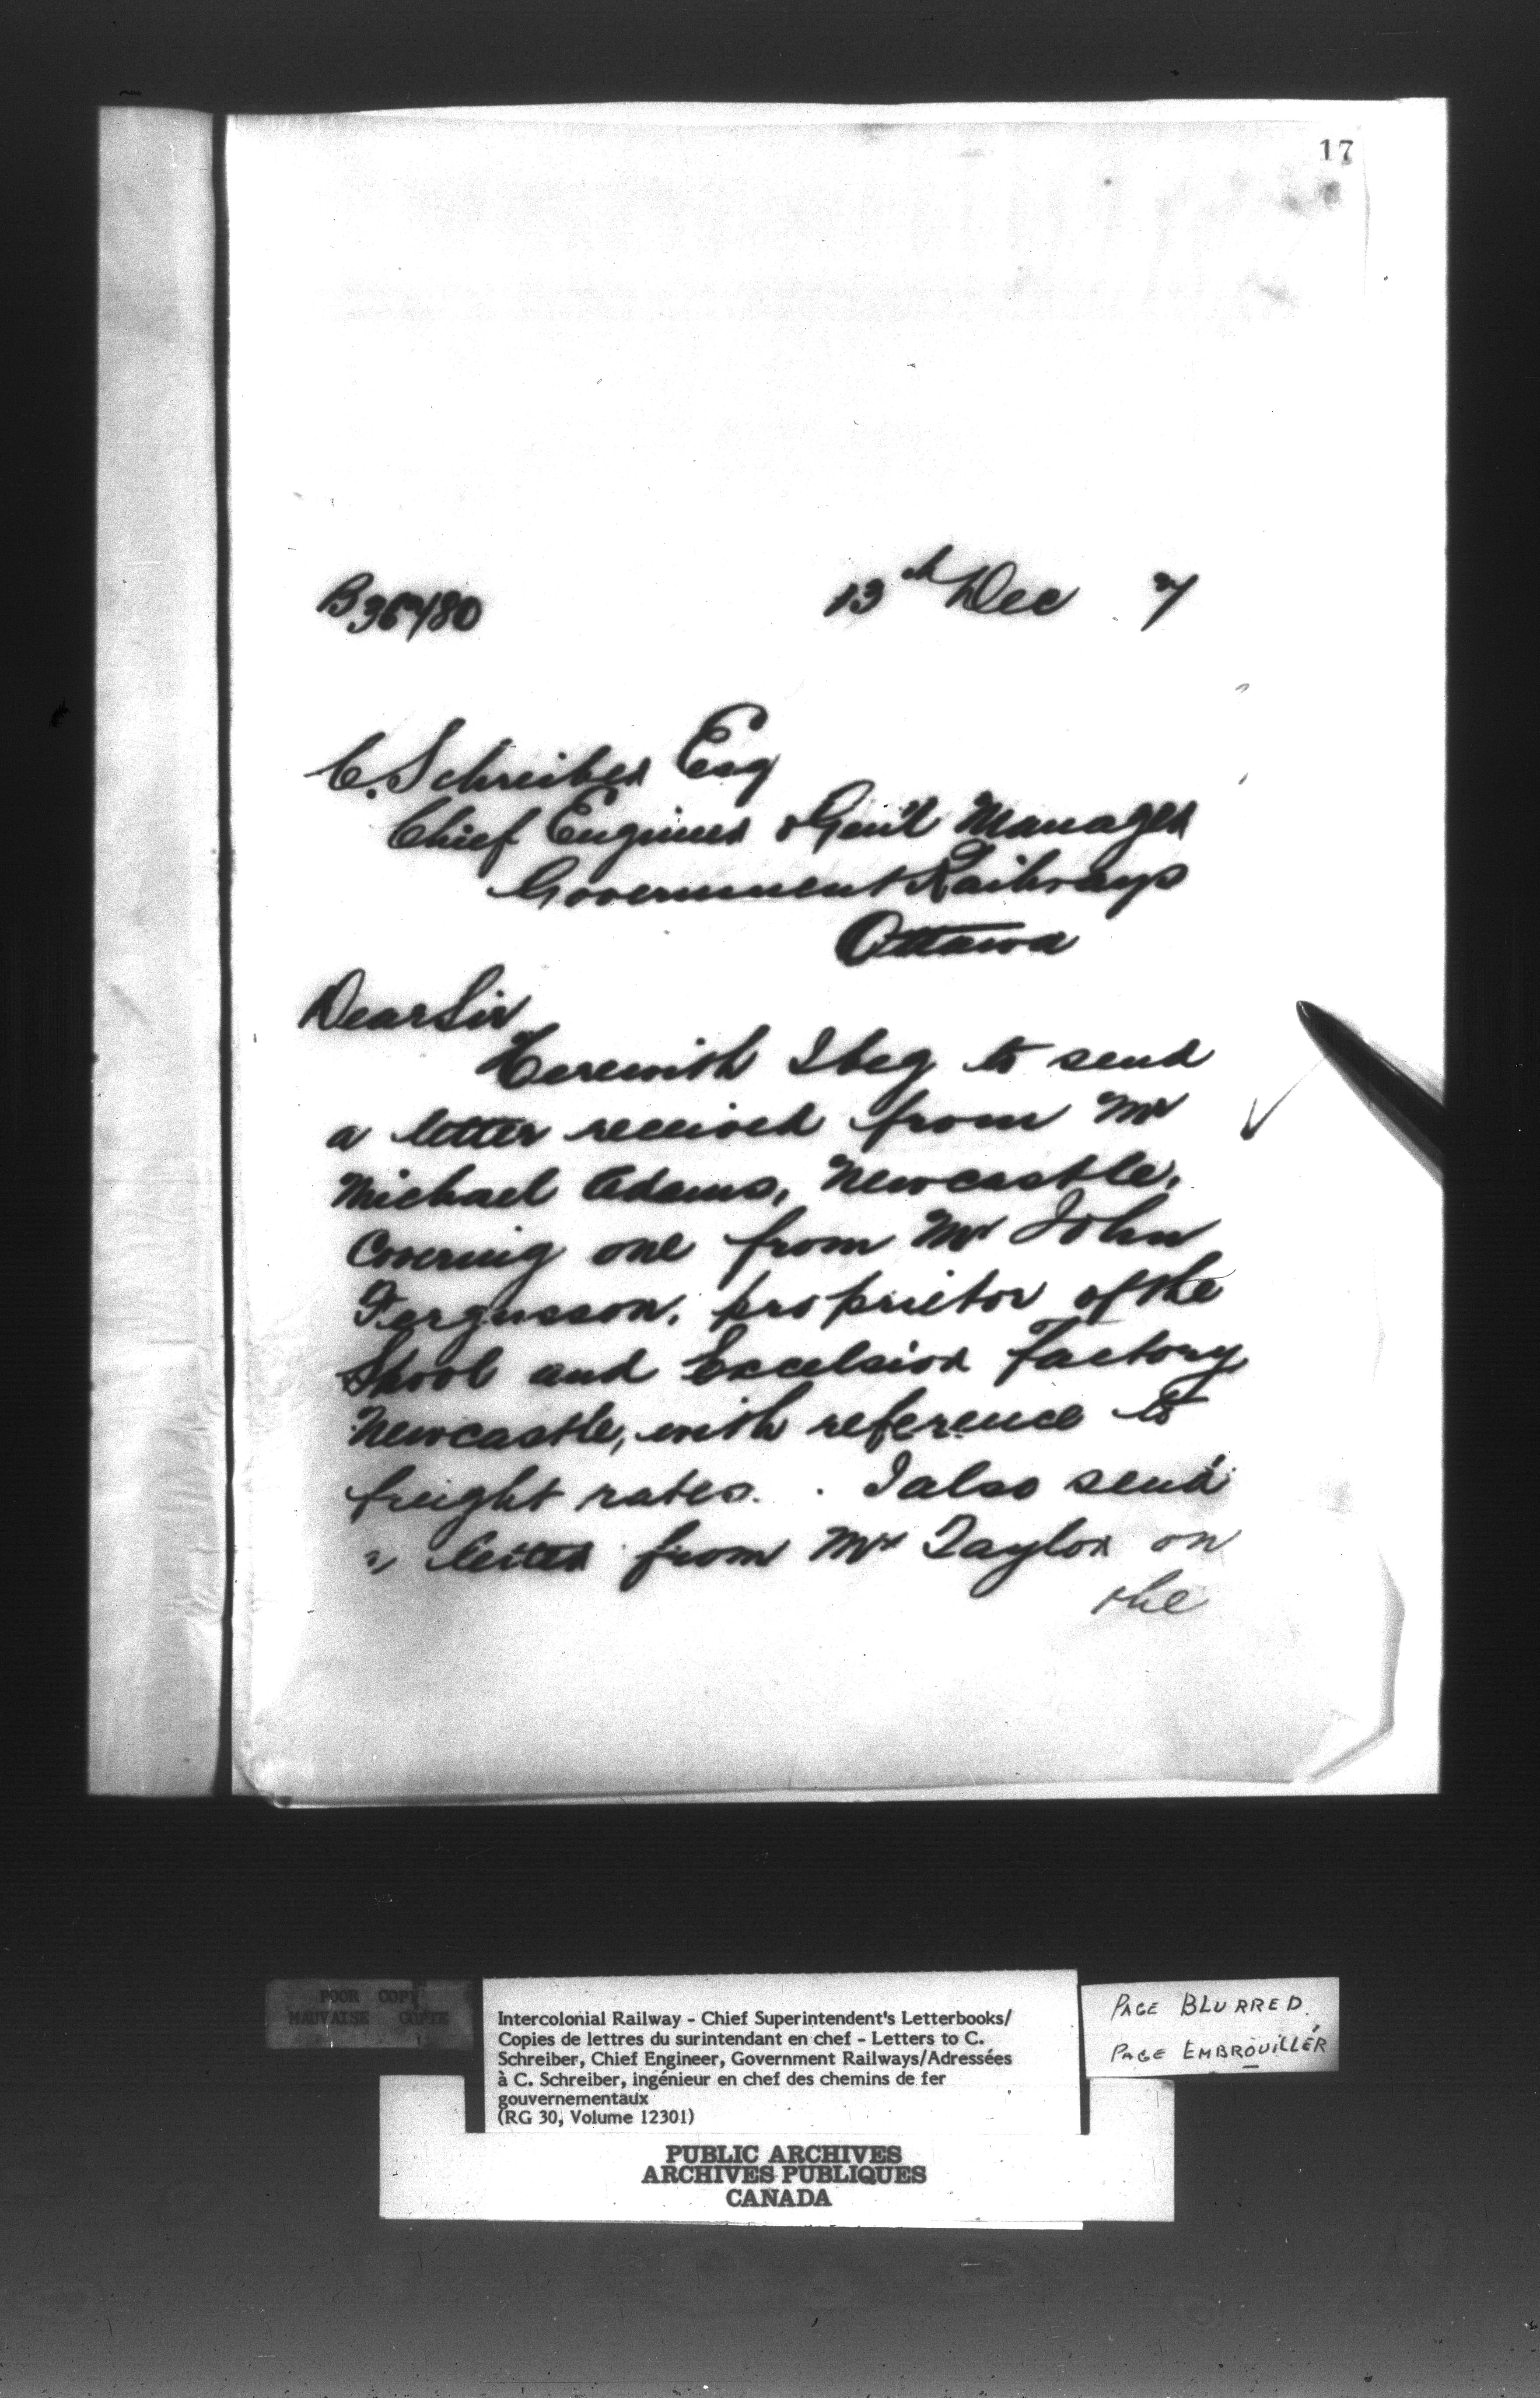 17
B36480
13th Dec 7
C. Schreiber Esq
Chief Engineer & Gen'l Manager
Government Railways
Ottawa
Dear Sir
Herewith I beg to send
a letter received from Mr
Michael Adams, Newcastle,
Covering one from Mr John
Fergusson, proprietor of the
Spool and Excelsior Factory
Newcastle, with reference to
freight rates. I also send
a letter from Mr Taylor on
the
POOR COPY
MAUVAISE COPIE
Intercolonial Railway - Chief Superintendent's Letterbooks/
Copies de lettres du surintendant en chef - Letters to C.
Schreiber, Chief Engineer, Government Railways/Adressées
à C. Schreiber, ingénieur en chef des chemins de fer
gouvernementaux
(RG 30, Volume 12301)
PAGE BLURRED.
PAGE EMBROUILLÉR
PUBLIC ARCHIVES
ARCHIVES PUBLIQUES
CANADA